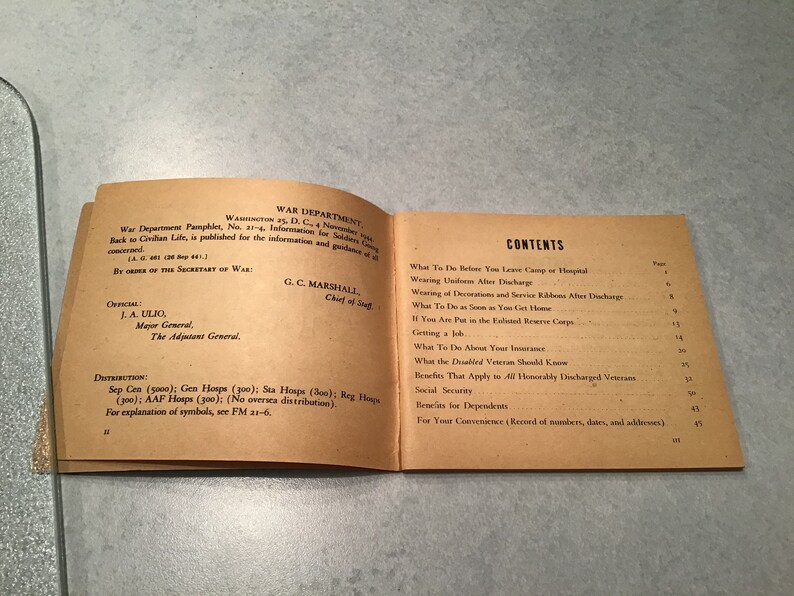 WAR DEPARTMENT,
WASHINGTON 25, D. C., 4 November 1944.
War Department Pamphlet, No. 21-4, Information for Soldiers Going
Back to Civilian Life, is published for the information and guidance of all
concerned.
[A. G. 461 (26 Sep 44).]
BY ORDER OF THE SECRETARY OF WAR:
G. C. MARSHALL,
Chief of Staff.
OFFICIAL:
J. A. ULIO,
Major General,
The Adjutant General.
DISTRIBUTION:
Sep Cen (5000); Gen Hosps (300); Sta Hosps (800); Reg Hosps
(300); AAF Hosps (300); (No oversea distribution).
For explanation of symbols, see FM 21-6.
II
CONTENTS
Page
What To Do Before You Leave Camp or Hospital 1
Wearing Uniform After Discharge 6
Wearing of Decorations and Service Ribbons After Discharge 8
What To Do as Soon as You Get Home 9
If You Are Put in the Enlisted Reserve Corps 13
Getting a Job 14
What To Do About Your Insurance 20
What the Disabled Veteran Should Know 25
Benefits That Apply to All Honorably Discharged Veterans 32
Social Security 50
Benefits for Dependents 43
For Your Convenience (Record of numbers, dates, and addresses) 45
III